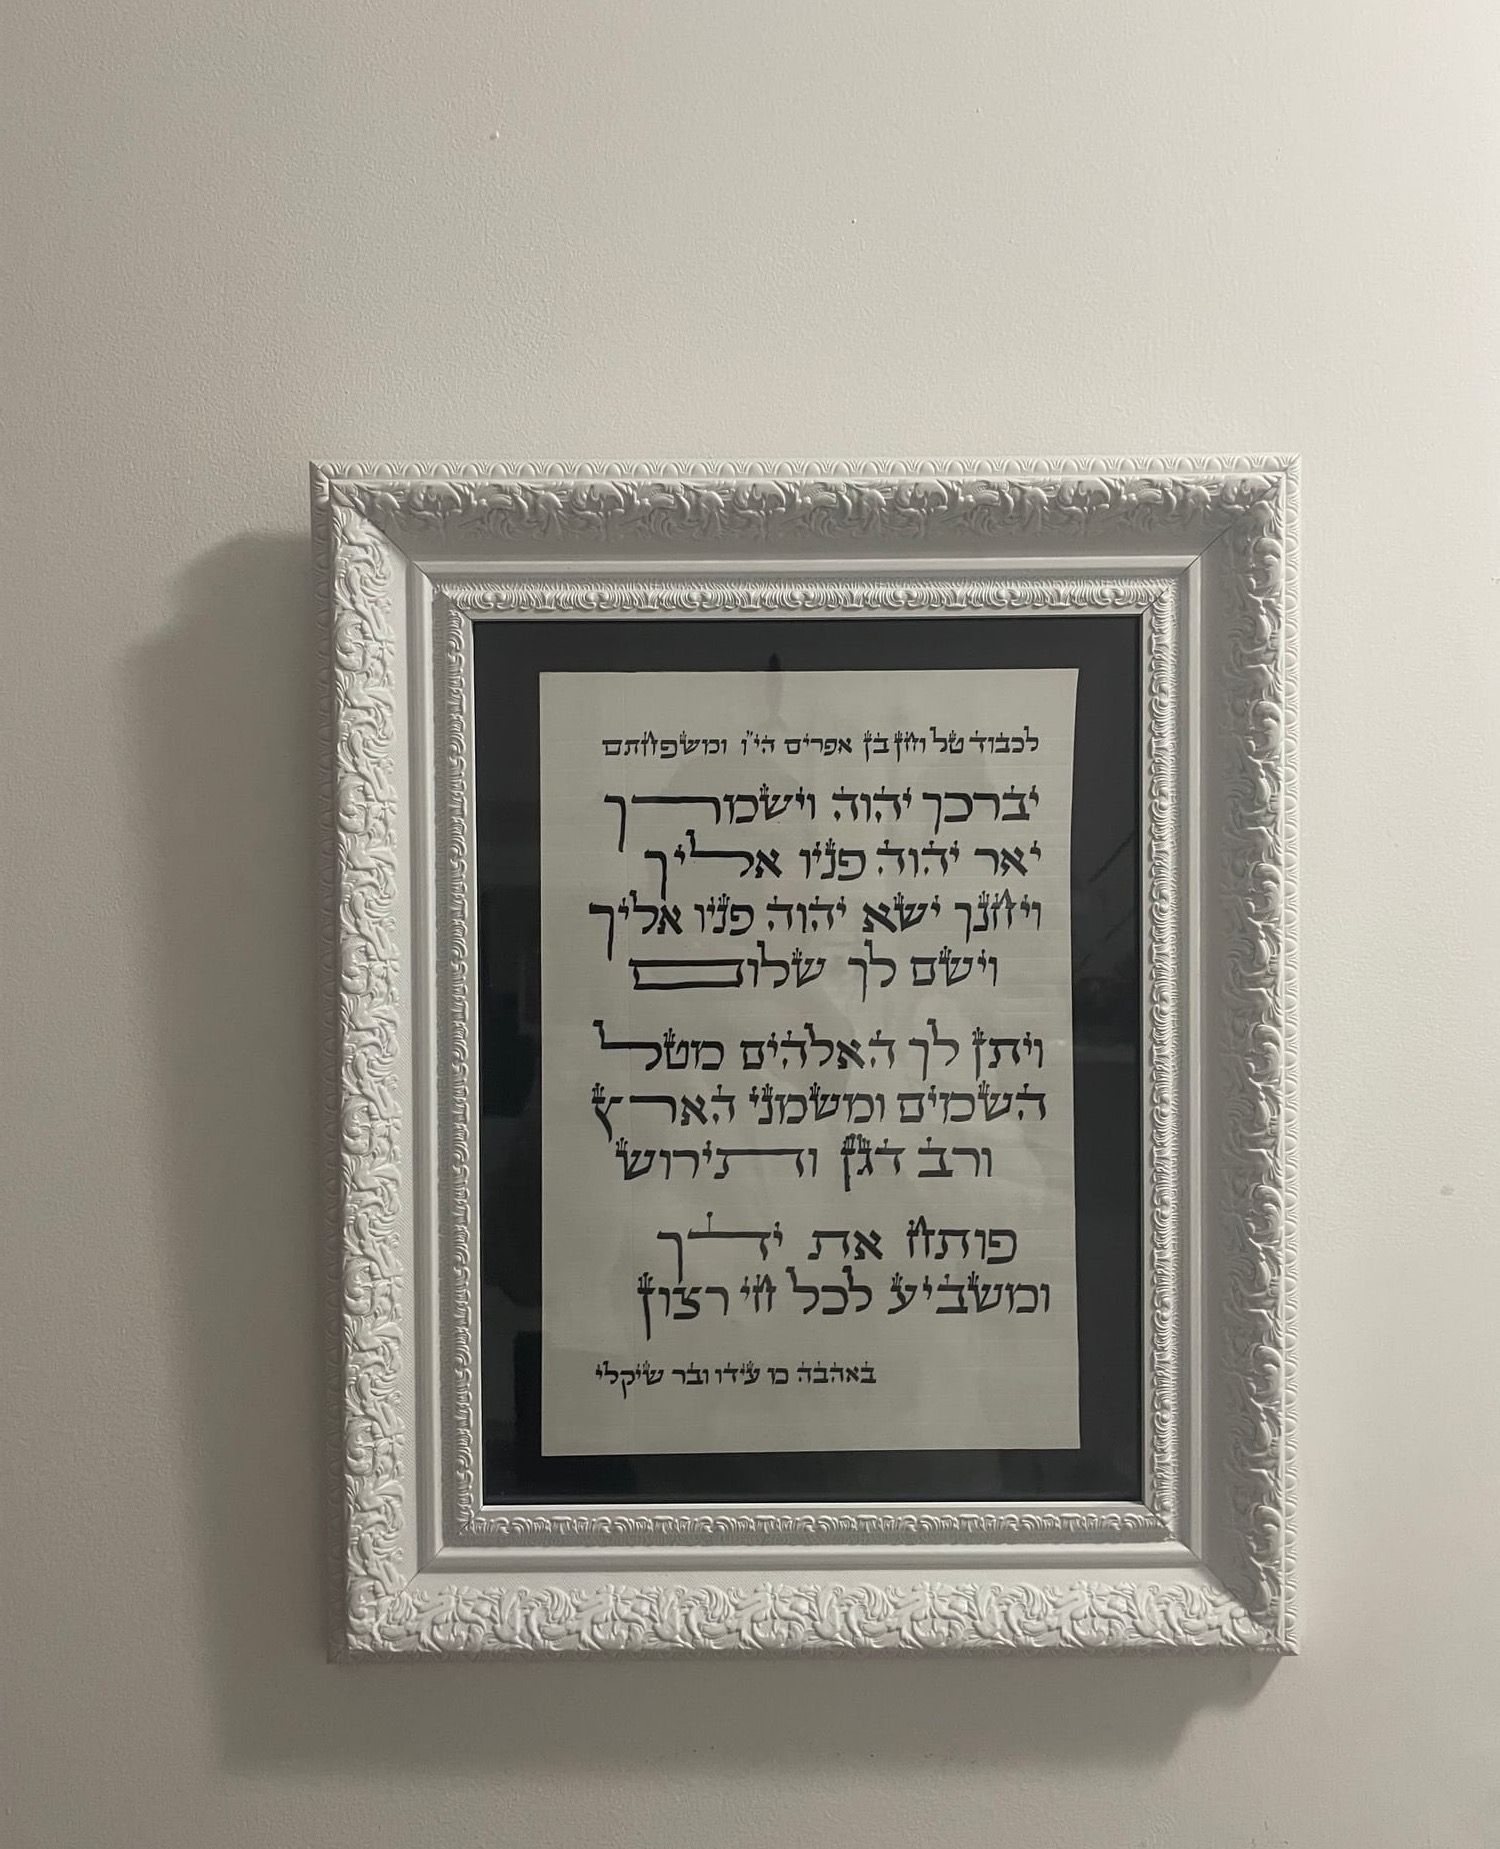 לכבוד טל וחן בן אפרים הי"ו ומשפחתם
יברכך יהוה וישמרך
יאר יהוה פניו אליך
ויחנך ישא יהוה פניו אליך
וישם לך שלום
ויתן לך האלהים מטל
השמים ומשמני הארץ
ורב דגן ותירוש
פותח את ידך
ומשביע לכל חי רצון
באהבה עידו ובר שיקלי